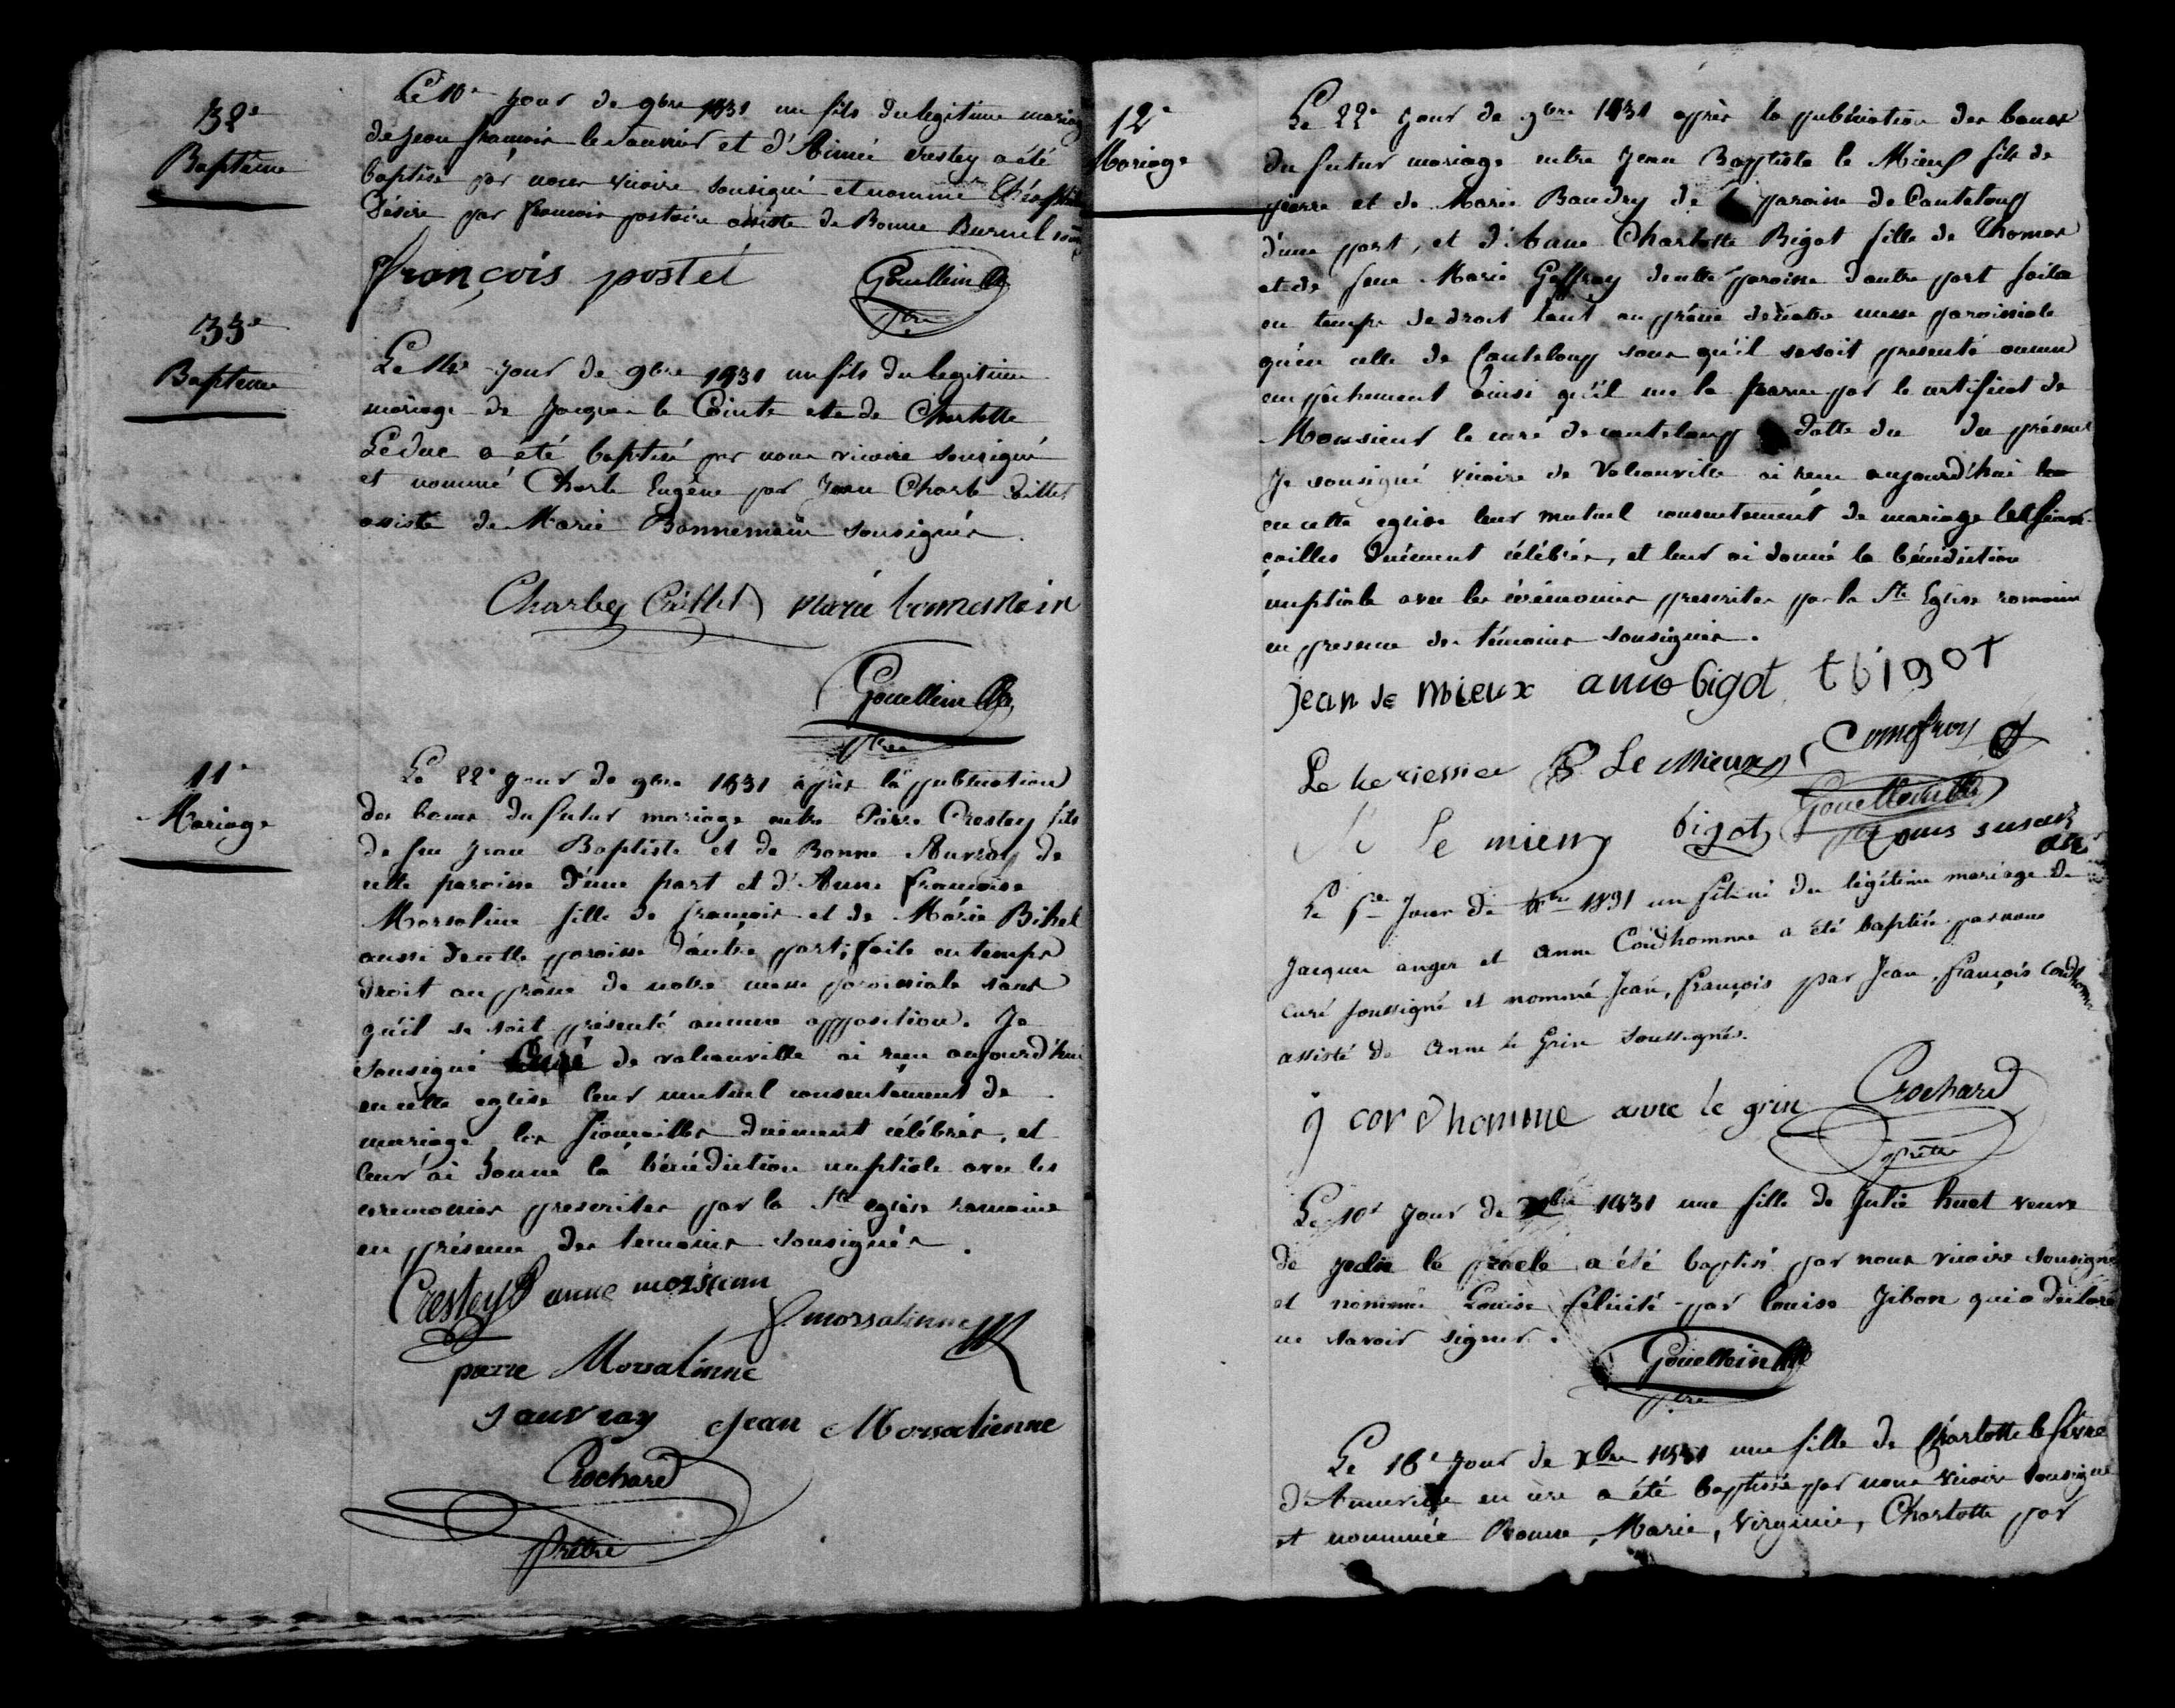 32e
Baptême
Le 10e jour de 9bre 1831 un fils du legitime mariag
de jean françois le vannier et d'Aimée Crestey a été
baptisé par nous vicaire sousigné et nommé
Désiré par françois assisté de Bonne Burnel
françois postel
Gouelleinlle
ptre
33e
Bapteme
Le jour de 9bre 1831 un fils du legitime
mariage de Jacques le Cointe et de Charlotte
Leduc a été baptisé par nous vicaire sousigné
et nommé Charle Eugène par Jean Charle Caillet
assisté de Marie Bonnemain sousignés.
Charles Caillet marie bonnemain
Gouelleinlle
ptre
11e
Mariage
Le 22e jour de 9bre 1831 après la publication
des bans du futur mariage entre Pierre Crestey fils
de feu Jean Baptiste et de Bonne Auvray de
cette paroisse d'une part et d'Anne françoise
Morsaline fille de françois et de Marie Bihel
aussi de cette paroisse d'autre part, faite en temps
droit au prône de notre messe paroissiale sans
qu'il se soit présenté aucune opposition. Je
sousigné Curé de valcanville ai reçu aujourd'hui
en cette eglise leur mutuel consentement de
mariage, les fiançailles duement célébrés, et
leur ai donné la bénédiction nuptiale avec les
ceremonies prescrites par la Ste eglise romaine
en présence des temoins sousignés.
Crestey anne
f. morsalinne
pierre Morsalinne
J auvray Jean Morsalienne
Crochard
Prêtre
12e
Mariage
Le 22e jour de 9bre 1831 après la publication des bans
du futur mariage entre Jean Baptiste le Mieux fils de
pierre et de Marie Baudry de paroisse de Canteloup
d'une part, et d'Anne Charlotte Bigot fille de Thomas
et de feue Marie Geffroy de cette paroisse d'autre part faite
en temps de droit tant au prône de notre messe paroissiale
qu'en celle de Canteloup sans qu'il se soit presenté aucun
empêchement ainsi qu'il me la par le certificat de
Monsieur le curé de canteloup datte du du présent
Je sousigné vicaire de Valcanville ai reçu aujourd'hui
en cette eglise leur mutuel consentement de mariage les fian-
çailles duement célébrés, et leur ai donné la bénédiction
nuptiale avec les cérémonies prescrites par la Ste Eglise romaine
en presence des témoins sousignés.
jean le mieux anne bigot t bigot
Le Le Mieux
le mieux bigot Gouelleinlle
ptre
Le 1er Jour de 1831 un fils né du légitime mariage de
Jacques anger et anne Cordhomme a été baptisé par nous
curé soussigné et nommé Jean, françois par Jean, françois Cordhomme
assisté de anne le Grin soussignés.
j cordhomme anne le grin Crochard
prêtre
Le 10e jour de Xbre 1831 une fille de Julie huet veuve
de le a été baptisé par nous vicaire sousigné
et nommé Louise félicité par louise Jibon qui a declaré
ne savoir signer.
Gouelleinlle
ptre
Le 16e jour de Xbre 1831 une fille de Charlotte le fevre
d'Anneville en cere a été baptisée par nous vicaire sousigné
et nommée Bonne, Marie, Virginie, Charlotte par